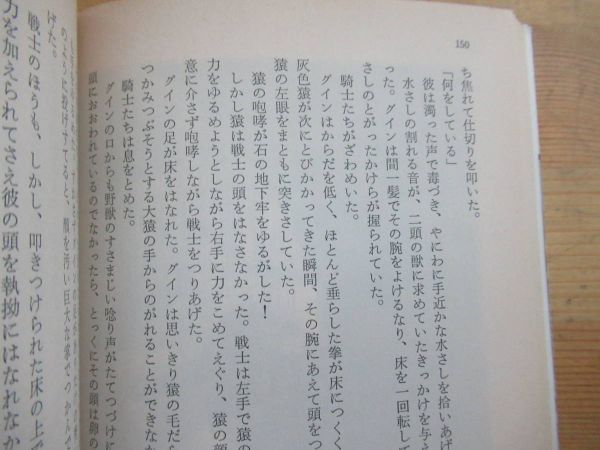 150
ち焦れて仕切りを叩いた。
「何をしている」
彼は濁った声で毒づき、やにわに手近かな水さしを拾いあげ
水さしの割れる音が、二頭の獣に求めていたきっかけを与え
った。グインは間一髪でその腕をよけるなり、床を一回転して
さしのとがったかけらが握られていた。
騎士たちがざわめいた。
グインはからだを低く、ほとんど垂らした拳が床につくく
灰色猿が次にとびかかってきた瞬間、その腕にあえて頭をつ
猿の左眼をまともに突きさしていた。
猿の咆哮が石の地下牢をゆるがした!
しかし猿は戦士の頭をはなさなかった。戦士は左手で猿の
力をゆるめようとしながら右手に力をこめてえぐり、猿の顔
意に介さず咆哮しながら戦士をつりあげた。
グインの足が床をはなれた。グインは思いきり猿の毛だら
つかみつぶそうとする大猿の手からのがれることができなか
騎士たちは息をとめた。
グインの口からも野獣のすさまじい唸り声がたてつづけに
頭におおわれているのでなかったら、とっくにその頭は卵の
のように投げすてると、顔を汚い巨大な掌でつかんで
げた。
戦士のほうも、しかし、叩きつけられた床の上で
力を加えられてさえ彼の頭を執拗にはなれなか